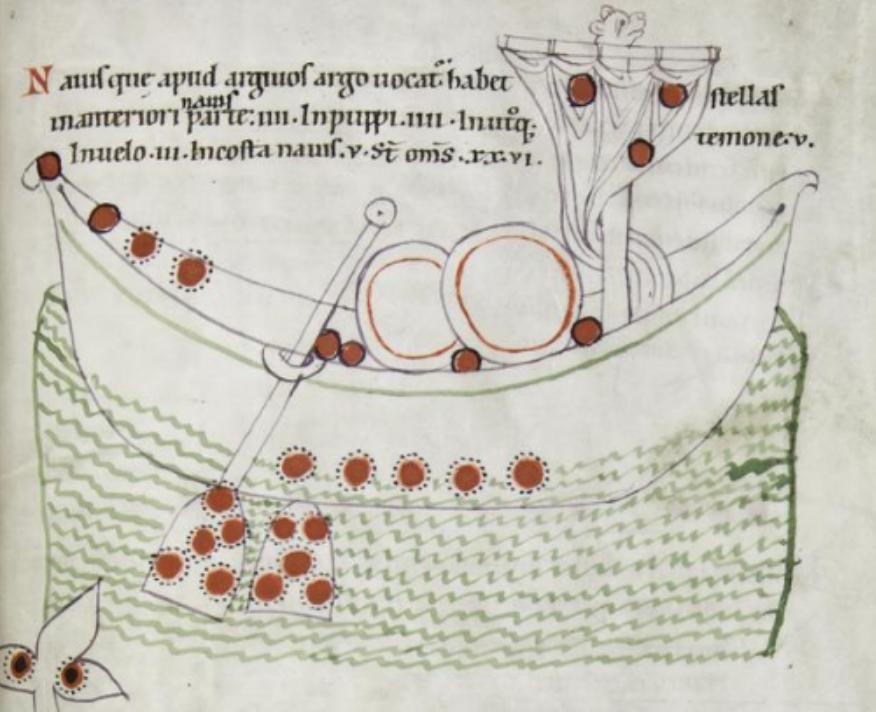 Nauis que apud argiuos argo uocat̃. habet stellas
in anteriori nauis parte. iiii. In puppi. iiii. In utq; temone. v.
In uelo. iii. In costa nauis. v. St̃ om̃s. xx. vi.